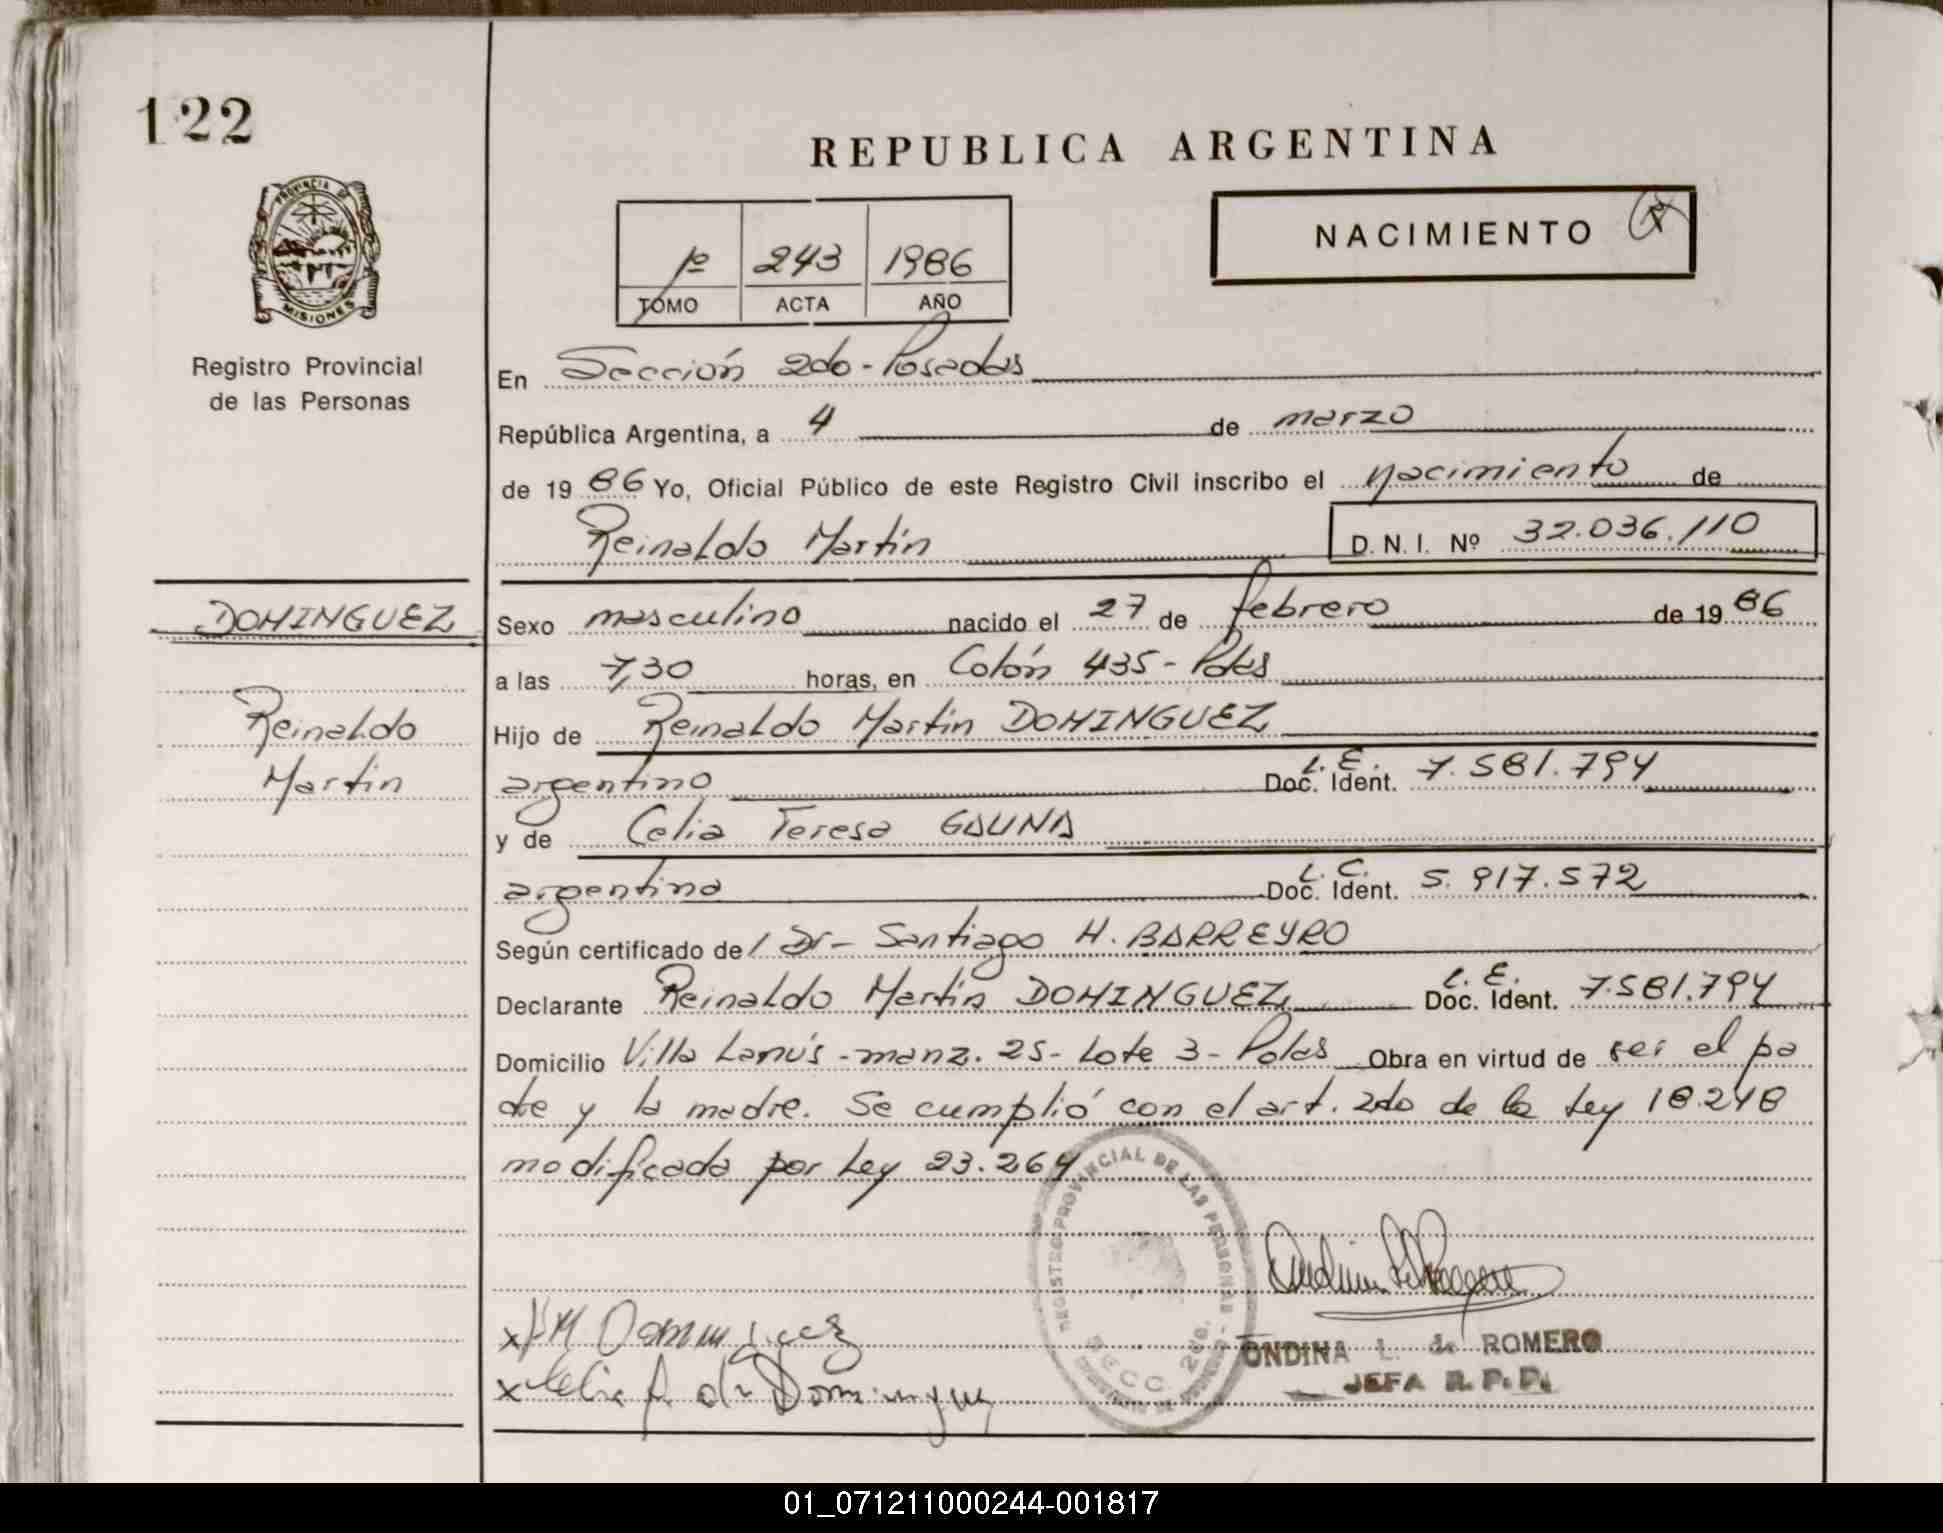 122
REPUBLICA ARGENTINA
PROVINCIA DE
MISIONES
Registro Provincial
de las Personas
1º 243 1986
TOMO ACTA AÑO
NACIMIENTO
En Sección 2do - Posadas
República Argentina, a 4 de marzo
de 19 86 Yo, Oficial Público de este Registro Civil inscribo el nacimiento de
Reinaldo Martín D. N. I. Nº 32.036.110
DOMINGUEZ
Reinaldo
Martin
Sexo masculino nacido el 27 de febrero de 19 86
a las 7,30 horas, en Colón 435 - Pdas
Hijo de Reinaldo Martin DOMINGUEZ
argentino L. E. Doc. Ident. 7.581.794
y de Celia Teresa GAUNA
argentina L. C. Doc. Ident. 5.917.572
Según certificado de / Dr - Santiago H. BARREYRO
Declarante Reinaldo Martín DOMINGUEZ L. E. Doc. Ident. 7.581.794
Domicilio Villa Lanús - manz. 25 - Lote 3 - Pdas Obra en virtud de ser el pa
dre y la madre. Se cumplió con el art. 2do de la Ley 18.248
modificada por Ley 23.264
REGISTRO PROVINCIAL DE LAS PERSONAS
SECC. 2da.
x R M Dominguez
x Celia de Dominguez
ONDINA L. de ROMERO
JEFA R. P. P.
01_071211000244-001817